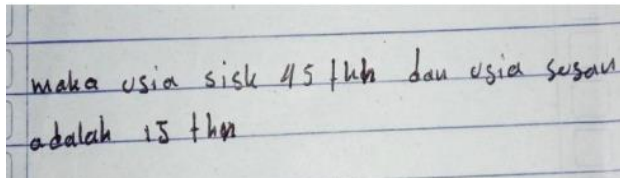 maka usia sisk 45 thn dan usia susan
adalah 15 thn